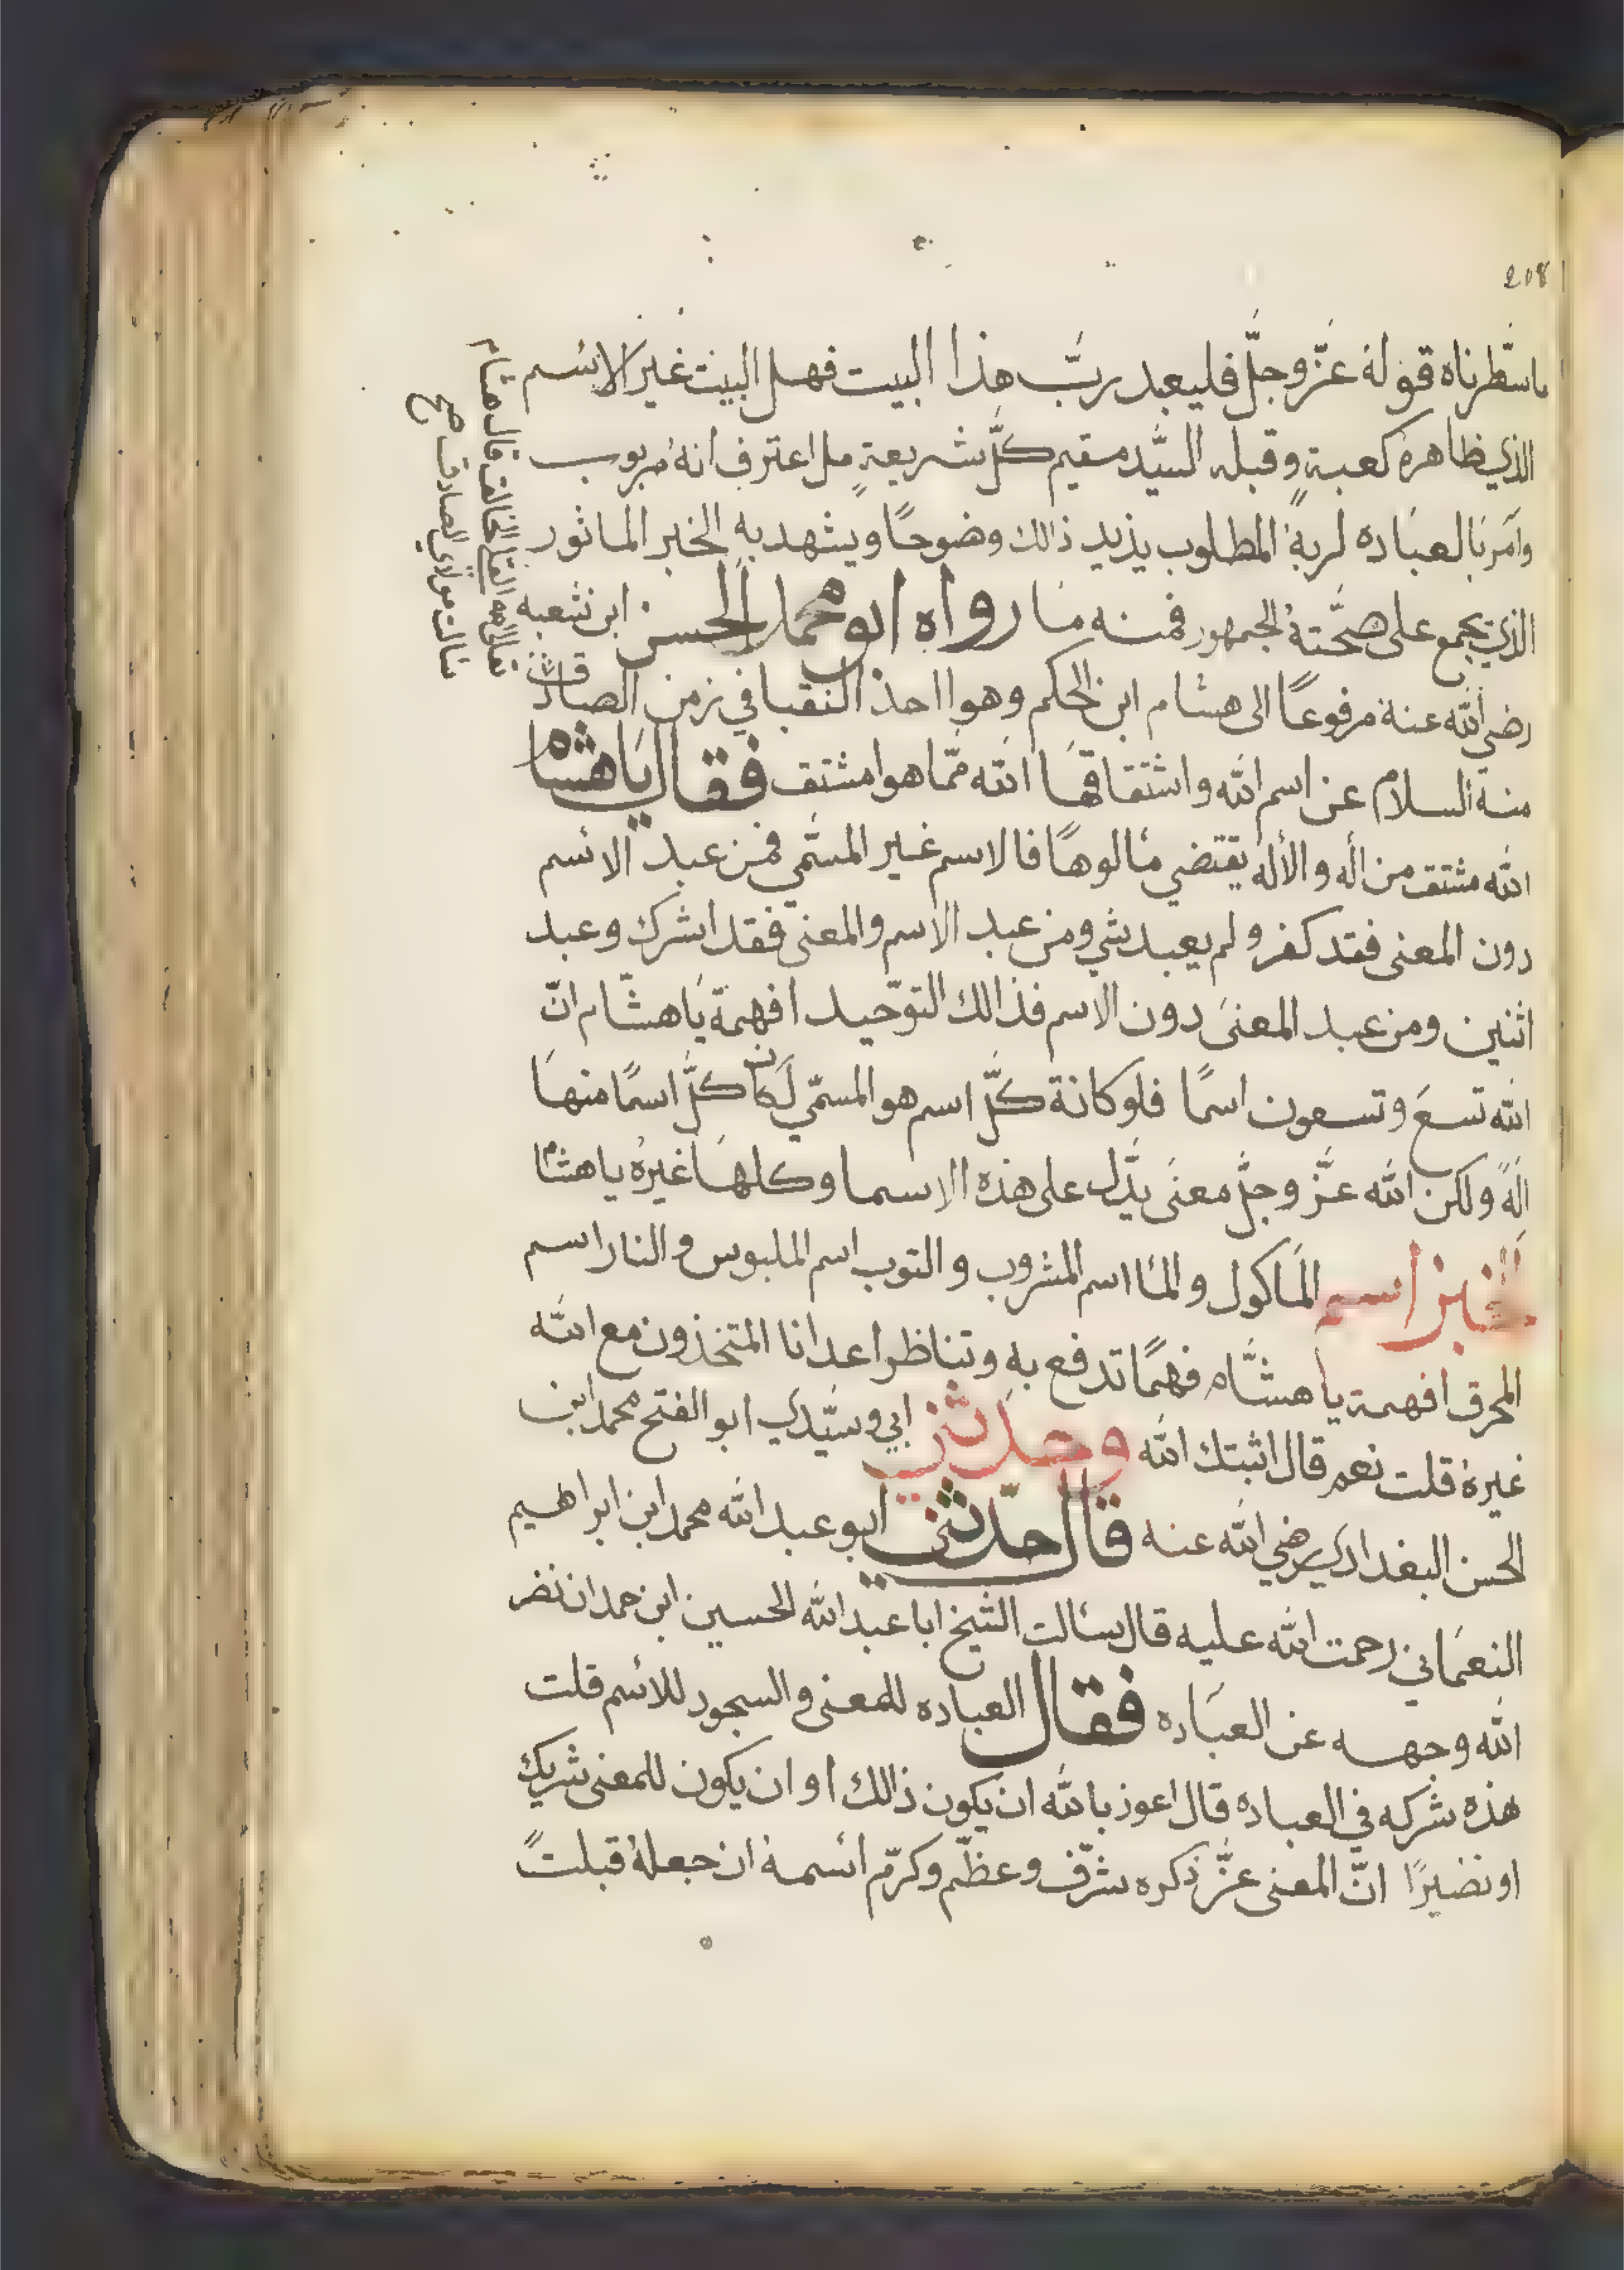 208
ماسطرناه قوله عزّ وجلّ فليعبد ربّ هذا البيت فهل البيت غير الاسم
الذي ظاهره كعبة وقبله السيد مقيم كلّ شريعةٍ بل اعترف انه مربوب
وآمر بالعباده لربه المطلوب يذيد ذالك وضوحًا ويشهد به الخبر الماثور
الذي يجمع على صحّته الجمهور فمنه ما رواه ابو محمد الحسن ابن شعبه
رضي الله عنه مرفوعًا الى هشام ابن الحكم وهوا احد النقبا في زمن الصادق
منه السلام عن اسم الله واشتقاقها الله ممّا هوا مشتق فقال يا هشام
الله مشتق من أله والأله يقتضي مالوهًا فالاسم غير المسمّي فمن عبد الاسم
دون المعنى فقد كفر ولم يعبد شي ومن عبد الاسم والمعنى فقد اشرك وعبد
اثنين ومن عبد المعنى دون الاسم فذالك التوحيد افهمة يا هشّام انّ
الله تسع وتسعون اسمًا فلو كانة كلّ اسم هو المسمّي لكان كلّ اسمًا منها
الهً ولكن الله عزّ وجلّ معنى يدّل على هذه الاسما وكلها غيرهُ يا هشام
الخبز اسم الماكول والما اسم المشروب والتوب اسم الملبوس والنار اسم
المحرق افهمة يا هشّام فهمًا تدفع به وتناظر اعدانا المتخذون مع الله
غيرهُ قلت نعم قال اثبتك الله وحدثني ابي وسيّدي ابو الفتح محمد ابن
الحسن البغدادي رضي الله عنه قال حدّثني ابو عبد الله محمد ابن ابراهيم
النعماني رحمت الله عليه قال سالت الشيخ ابا عبد الله الحسين ابن حمدان نضر
الله وجهه عن العباده فقال العباده للمعنى والسجود للاسم قلت
هذه شركه في العباده قال اعوذ بالله ان يكون ذالك او ان يكون للمعنى شريك
او نضيرًا انّ المعنى عزّ ذكره شرّف وعظّم وكرّم اسمهُ ان جعلهُ قبلتً
قال هشام
سالت مولاي الصادق صح